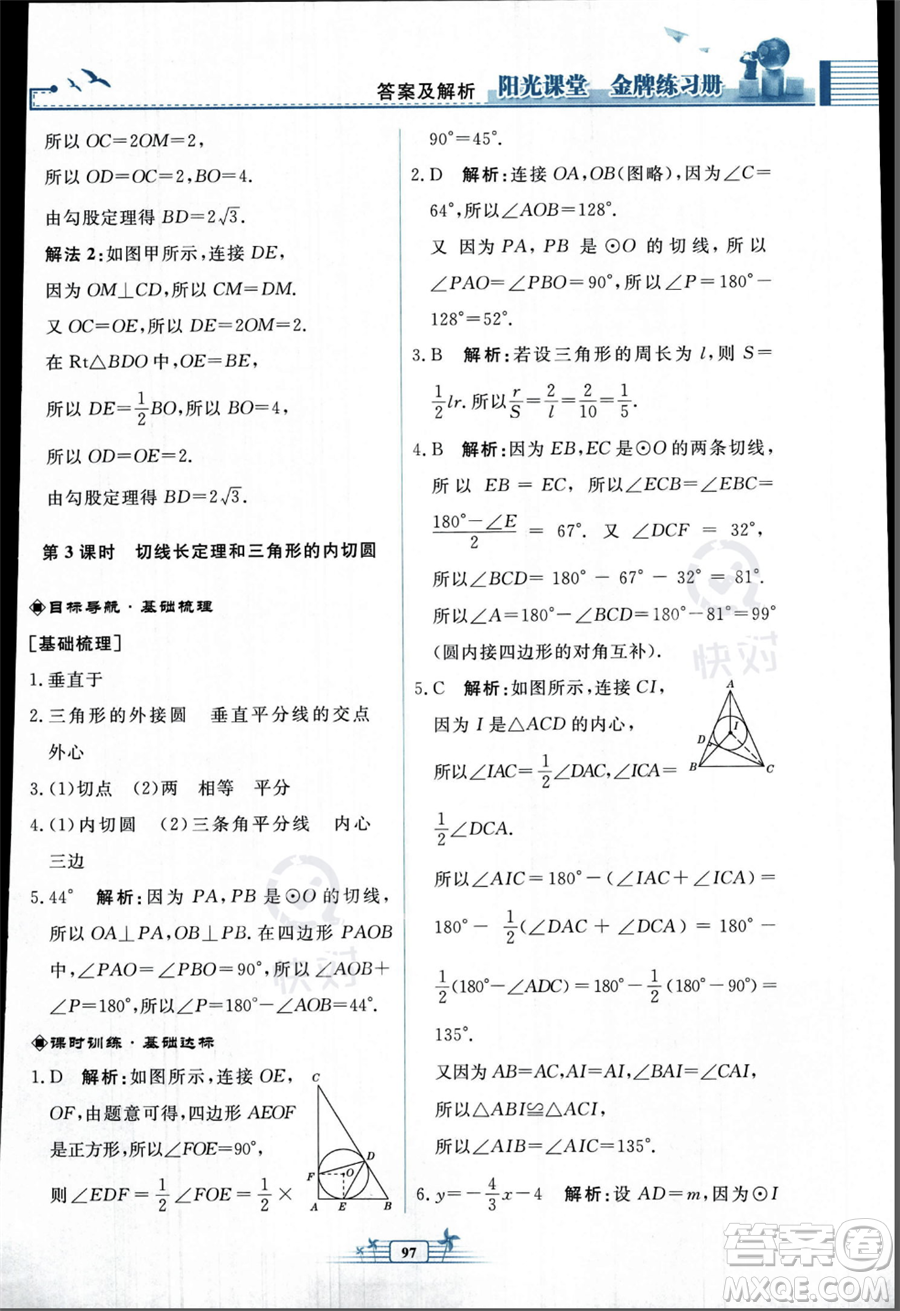 答案及解析 阳光课堂 金牌练习册
所以 OC=2OM=2,
所以 OD=OC=2,BO=4.
由勾股定理得 BD=2√3.
解法 2:如图甲所示,连接 DE,
因为 OM⊥CD,所以 CM=DM.
又 OC=OE,所以 DE=2OM=2.
在 Rt△BDO 中,OE=BE,
所以 DE=1/2BO,所以 BO=4,
所以 OD=OE=2.
由勾股定理得 BD=2√3.
第 3 课时 切线长定理和三角形的内切圆
目标导航·基础梳理
[基础梳理]
1.垂直于
2.三角形的外接圆 垂直平分线的交点
外心
3.(1)切点 (2)两 相等 平分
4.(1)内切圆 (2)三条角平分线 内心
三边
5.44° 解析:因为 PA,PB 是⊙O 的切线,
所以 OA⊥PA,OB⊥PB.在四边形 PAOB
中,∠PAO=∠PBO=90°,所以∠AOB+
∠P=180°,所以∠P=180°-∠AOB=44°.
课时训练·基础达标
1.D 解析:如图所示,连接 OE,
OF,由题意可得,四边形 AEOF
是正方形,所以∠FOE=90°,
则 ∠EDF=1/2∠FOE=1/2×
C
D
F
O
A E B
90°=45°.
2.D 解析:连接 OA,OB(图略),因为∠C=
64°,所以∠AOB=128°.
又 因为 PA,PB 是 ⊙O 的切线,所以
∠PAO=∠PBO=90°,所以∠P=180°-
128°=52°.
3.B 解析:若设三角形的周长为 l,则 S=
1/2lr.所以r/S=2/l=2/10=1/5.
4.B 解析:因为 EB,EC 是⊙O 的两条切线,
所以 EB=EC,所以∠ECB=∠EBC=
(180°-∠E)/2=67°.又∠DCF=32°,
所以∠BCD=180°-67°-32°=81°.
所以∠A=180°-∠BCD=180°-81°=99°
(圆内接四边形的对角互补).
5.C 解析:如图所示,连接 CI,
因为 I 是△ACD 的内心,
所以∠IAC=1/2∠DAC,∠ICA=
1/2∠DCA.
A
I
D
B C
所以∠AIC=180°-(∠IAC+∠ICA)=
180°-1/2(∠DAC+∠DCA)=180°-
1/2(180°-∠ADC)=180°-1/2(180°-90°)=
135°.
又因为 AB=AC,∠BAI=∠CAI,AI=AI,
所以△ABI≌△ACI,
所以∠AIB=∠AIC=135°.
6.y=-4/3x-4 解析:设 AD=m,因为⊙I
97
快对
快对
答案卷
MXQE.COM